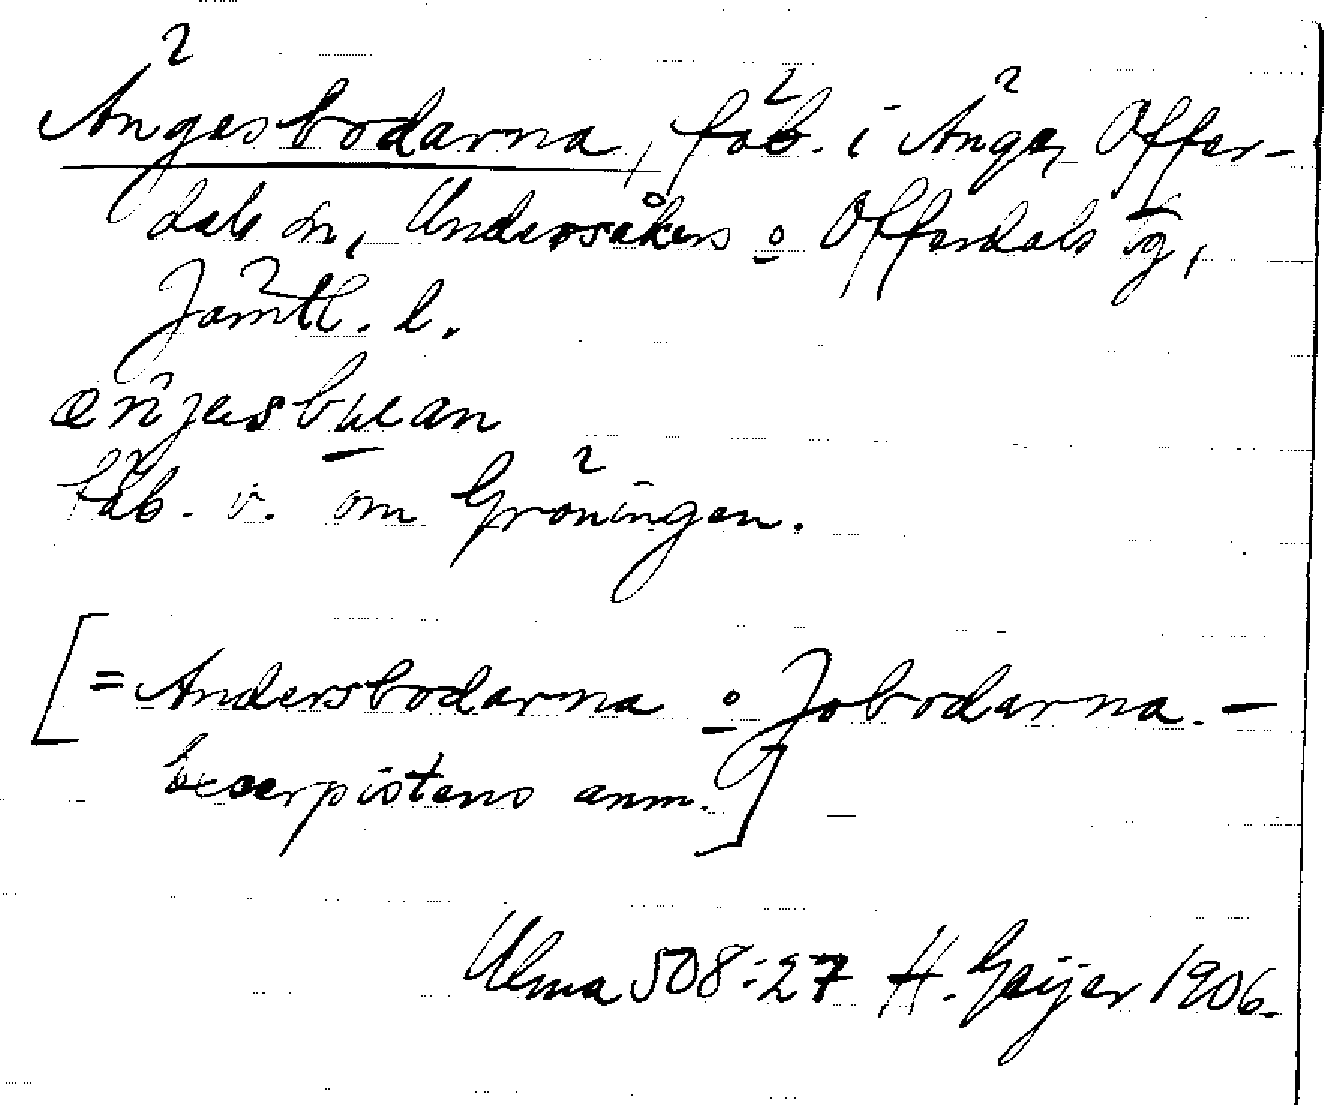 Ängesbodarna, fäb. i Änge, Offer-
dals sn, Undersåkers o Offerdals tg,
Jämtl. l.
æŋjesbuan
fäb. v. om Gröningen.
[= Andersbodarna o Jobodarna. –
Excerpistens anm.]
Ulma 508:27 H. Geijer 1906.